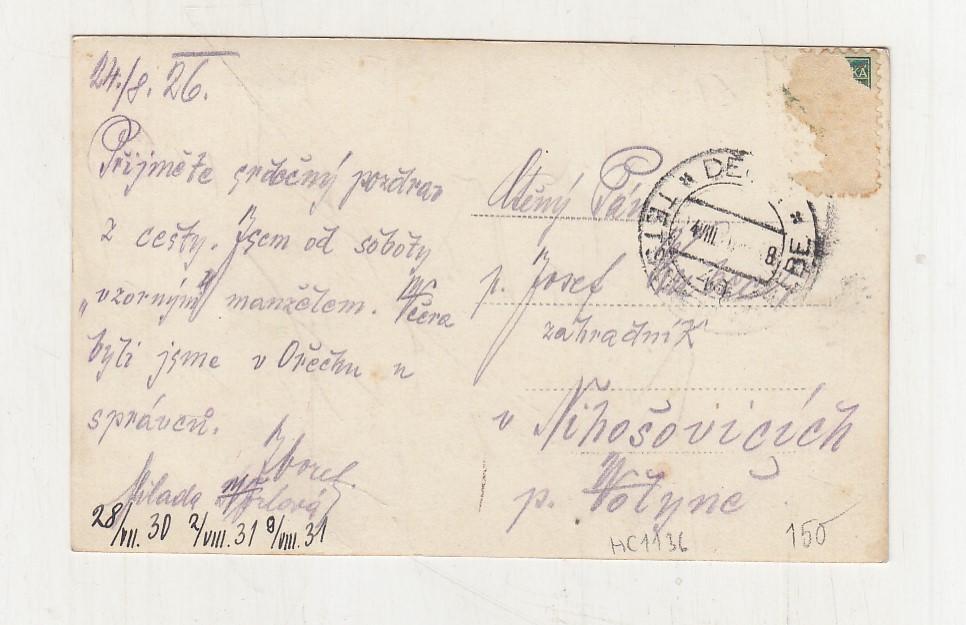 24./8. 26.
Přijměte srdečný pozdrav
z cesty. Jsem od soboty
„vzorným" manželem. Včera
byli jsme v Ořechu u
správců.
Milada
28/VII. 30 2/VIII. 31 8/VIII. 31
Ctěný Pán
p. Josef
zahradník
v Nihošovicích
p. Volyně
HC1136
150
KA